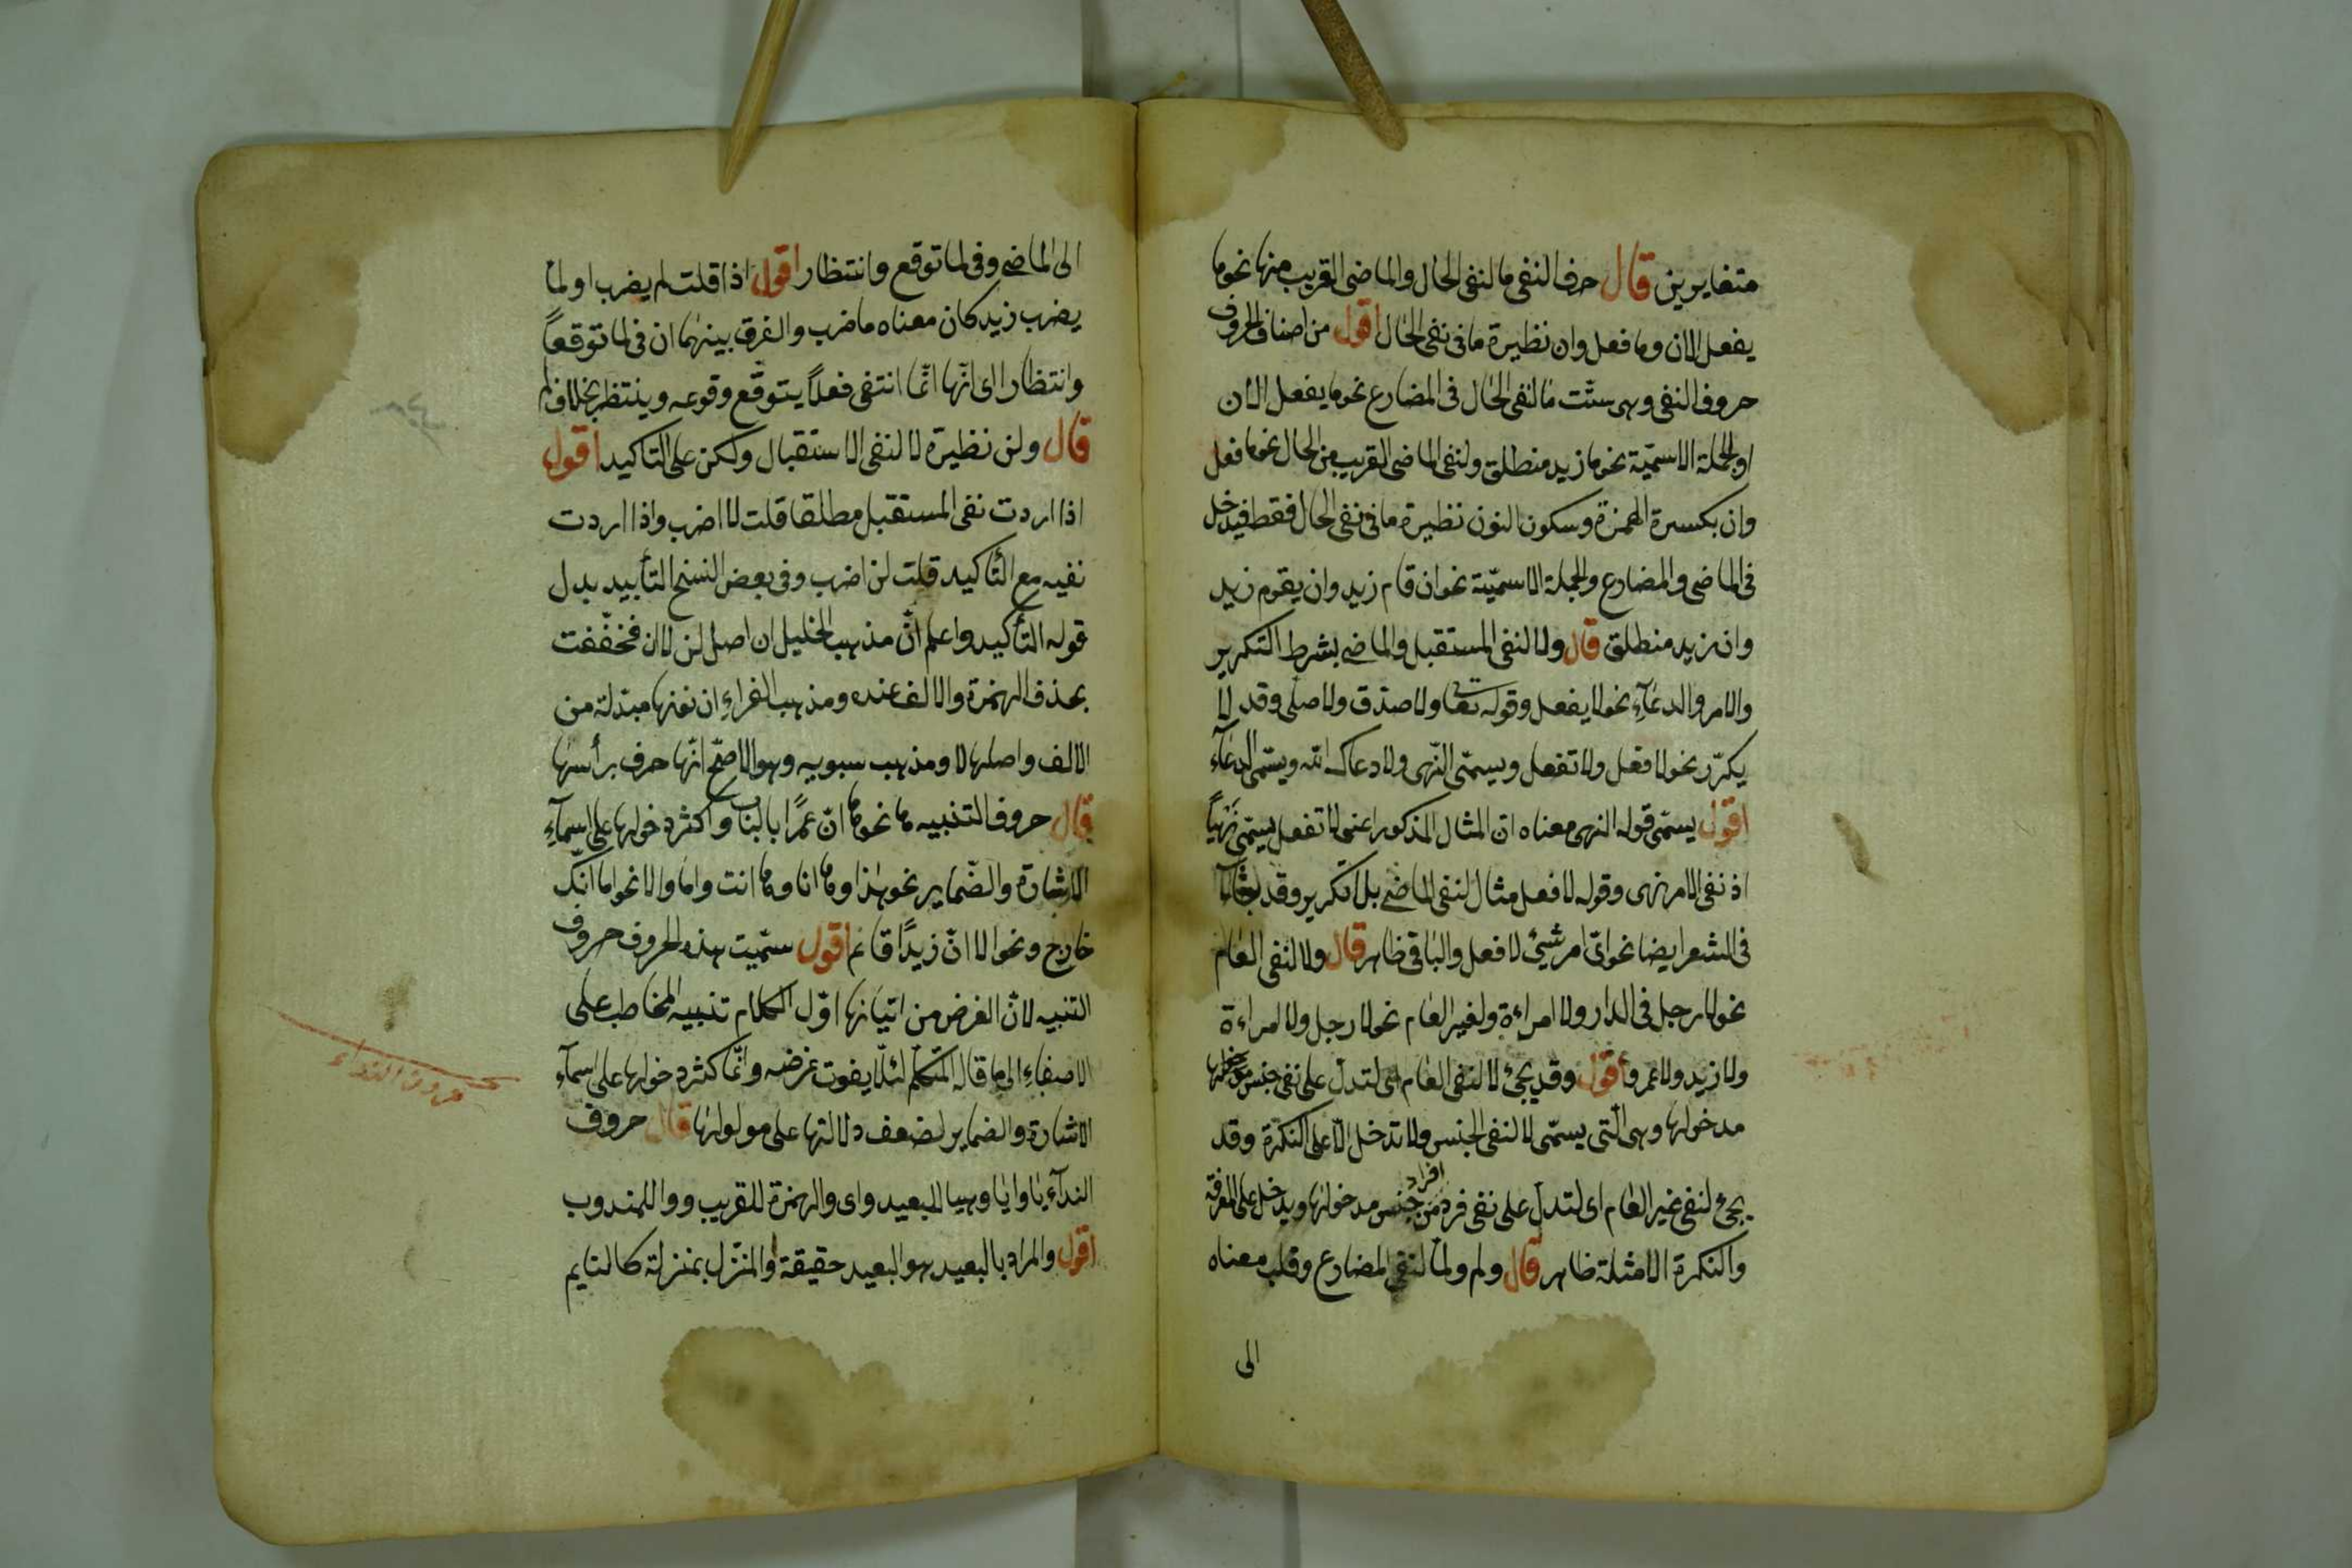 متغايرين قال حرف النفى ما لنفى الحال والماضى القريب منها نحو ما
يفعل الان وما فعل وان نظيرة ما فى نفى الحال اقول من اصناف الحروف
حروف النفى وهى ستّت ما لنفى الحال فى المضارع نحو ما يفعل الان
او الجملة الاسميّة نحو ما زيد منطلق ولنفى الماضى القريب من الحال نحو ما فعل
وان بكسرة الهمزة وسكون النون نظيرة ما فى نفى الحال فقط فيدخل
فى الماضى والمضارع والجملة الاسميّة نحو ان قام زيد وان يقوم زيد
وان زيد منطلق قال ولا لنفى المستقبل والماضى بشرط التكرير
والامر والدعآءِ نحو لا يفعل وقوله تعا ولا صدّق ولا صلى وقد لا
يكرّر نحو لا فعل ولا تفعل ويسمّى النّهى ولا دعاك الله ويسمّى الدعآء
اقول يسمّى قوله النهى معناه انّ المثال المذكور اعنى لا تفعل يسمّى نهيًا
اذ نفى الامر نهى وقوله لا فعل مثال لنفى الماضى بلا تكرير وقد
فى الشعر ايضا نحو اىّ امر شيئ لا فعل والباقى ظاهر قال ولا لنفى العام
نحو لا رجل فى الدار ولا امراءة ولغير العام نحو لا رجل ولا امراءة
ولا زيد ولا عمرو اقول وقد يجئ لا لنفى العام اى لتدلّ على نفى جنس
مدخولها وهى الّتى يسمّى لا لنفى الجنس ولا تدخل الّا على النكرة وقد
يجئ لنفى غير العام اى لتدل على نفى فرد من افراد جنس مدخولها ويدخل على المعرفة
والنكرة الامثلة ظاهر قال ولم ولمّا لنفى المضارع وقلب معناه
الى
الى الماضى وفى لما توقع وانتظار اقول اذا قلت لم يضرب او لمّا
يضرب زيد كان معناه ما ضرب والفرق بينهما ان فى لما توقعاً
وانتظارا اى انّها انّما انتفى فعلاً يتوقّع وقوعه وينتظر بخلاف لم
قال ولن نظيرة لا لنفى الاستقبال ولكن على التاكيد اقول
اذا اردت نفى المستقبل مطلقا قلت لا اضرب واذا اردت
نفيه مع التأكيد قلت لن اضرب وفى بعض النسخ التأبيد بدل
قوله التأكيد واعلم انّ مذهب الخليل ان اصل لن لا ان فخفّفت
بحذف الهمزة والالف عنده ومذهب الفراءِ ان نونها مبدّلة من
الالف واصلها لا ومذهب سبويه وهو الاصحّ انّها حرف برأسها
قال حروف التنبيه ها نحو ها انّ عمرًا بالباب واكثر دخولها على اسمآءِ
الاشارة والضّماير نحو هذا وها انا وها انت واما والا نحو اما انّك
خارج ونحو الا انّ زيدًا قائم اقول سمّيت هذه الحروف حروف
التنبيه لانّ الغرض من اتيانها اوّل الكلام تنبيه المخاطب على
الاصغاءِ الى ما قاله المتكلّم لئلّا يفوت غرضه وانّما كثر دخولها على اسمآءِ
الاشارة والضماير لضعف دلالتها على مدلولها قال حروف
الندآءِ يا وايا وهيا للبعيد واى والهمزة للقريب ووا للمندوب
اقول والمراد بالبعيد هو البعيد حقيقة او المنزّل بمنزلة كالنايم
حروف النداء